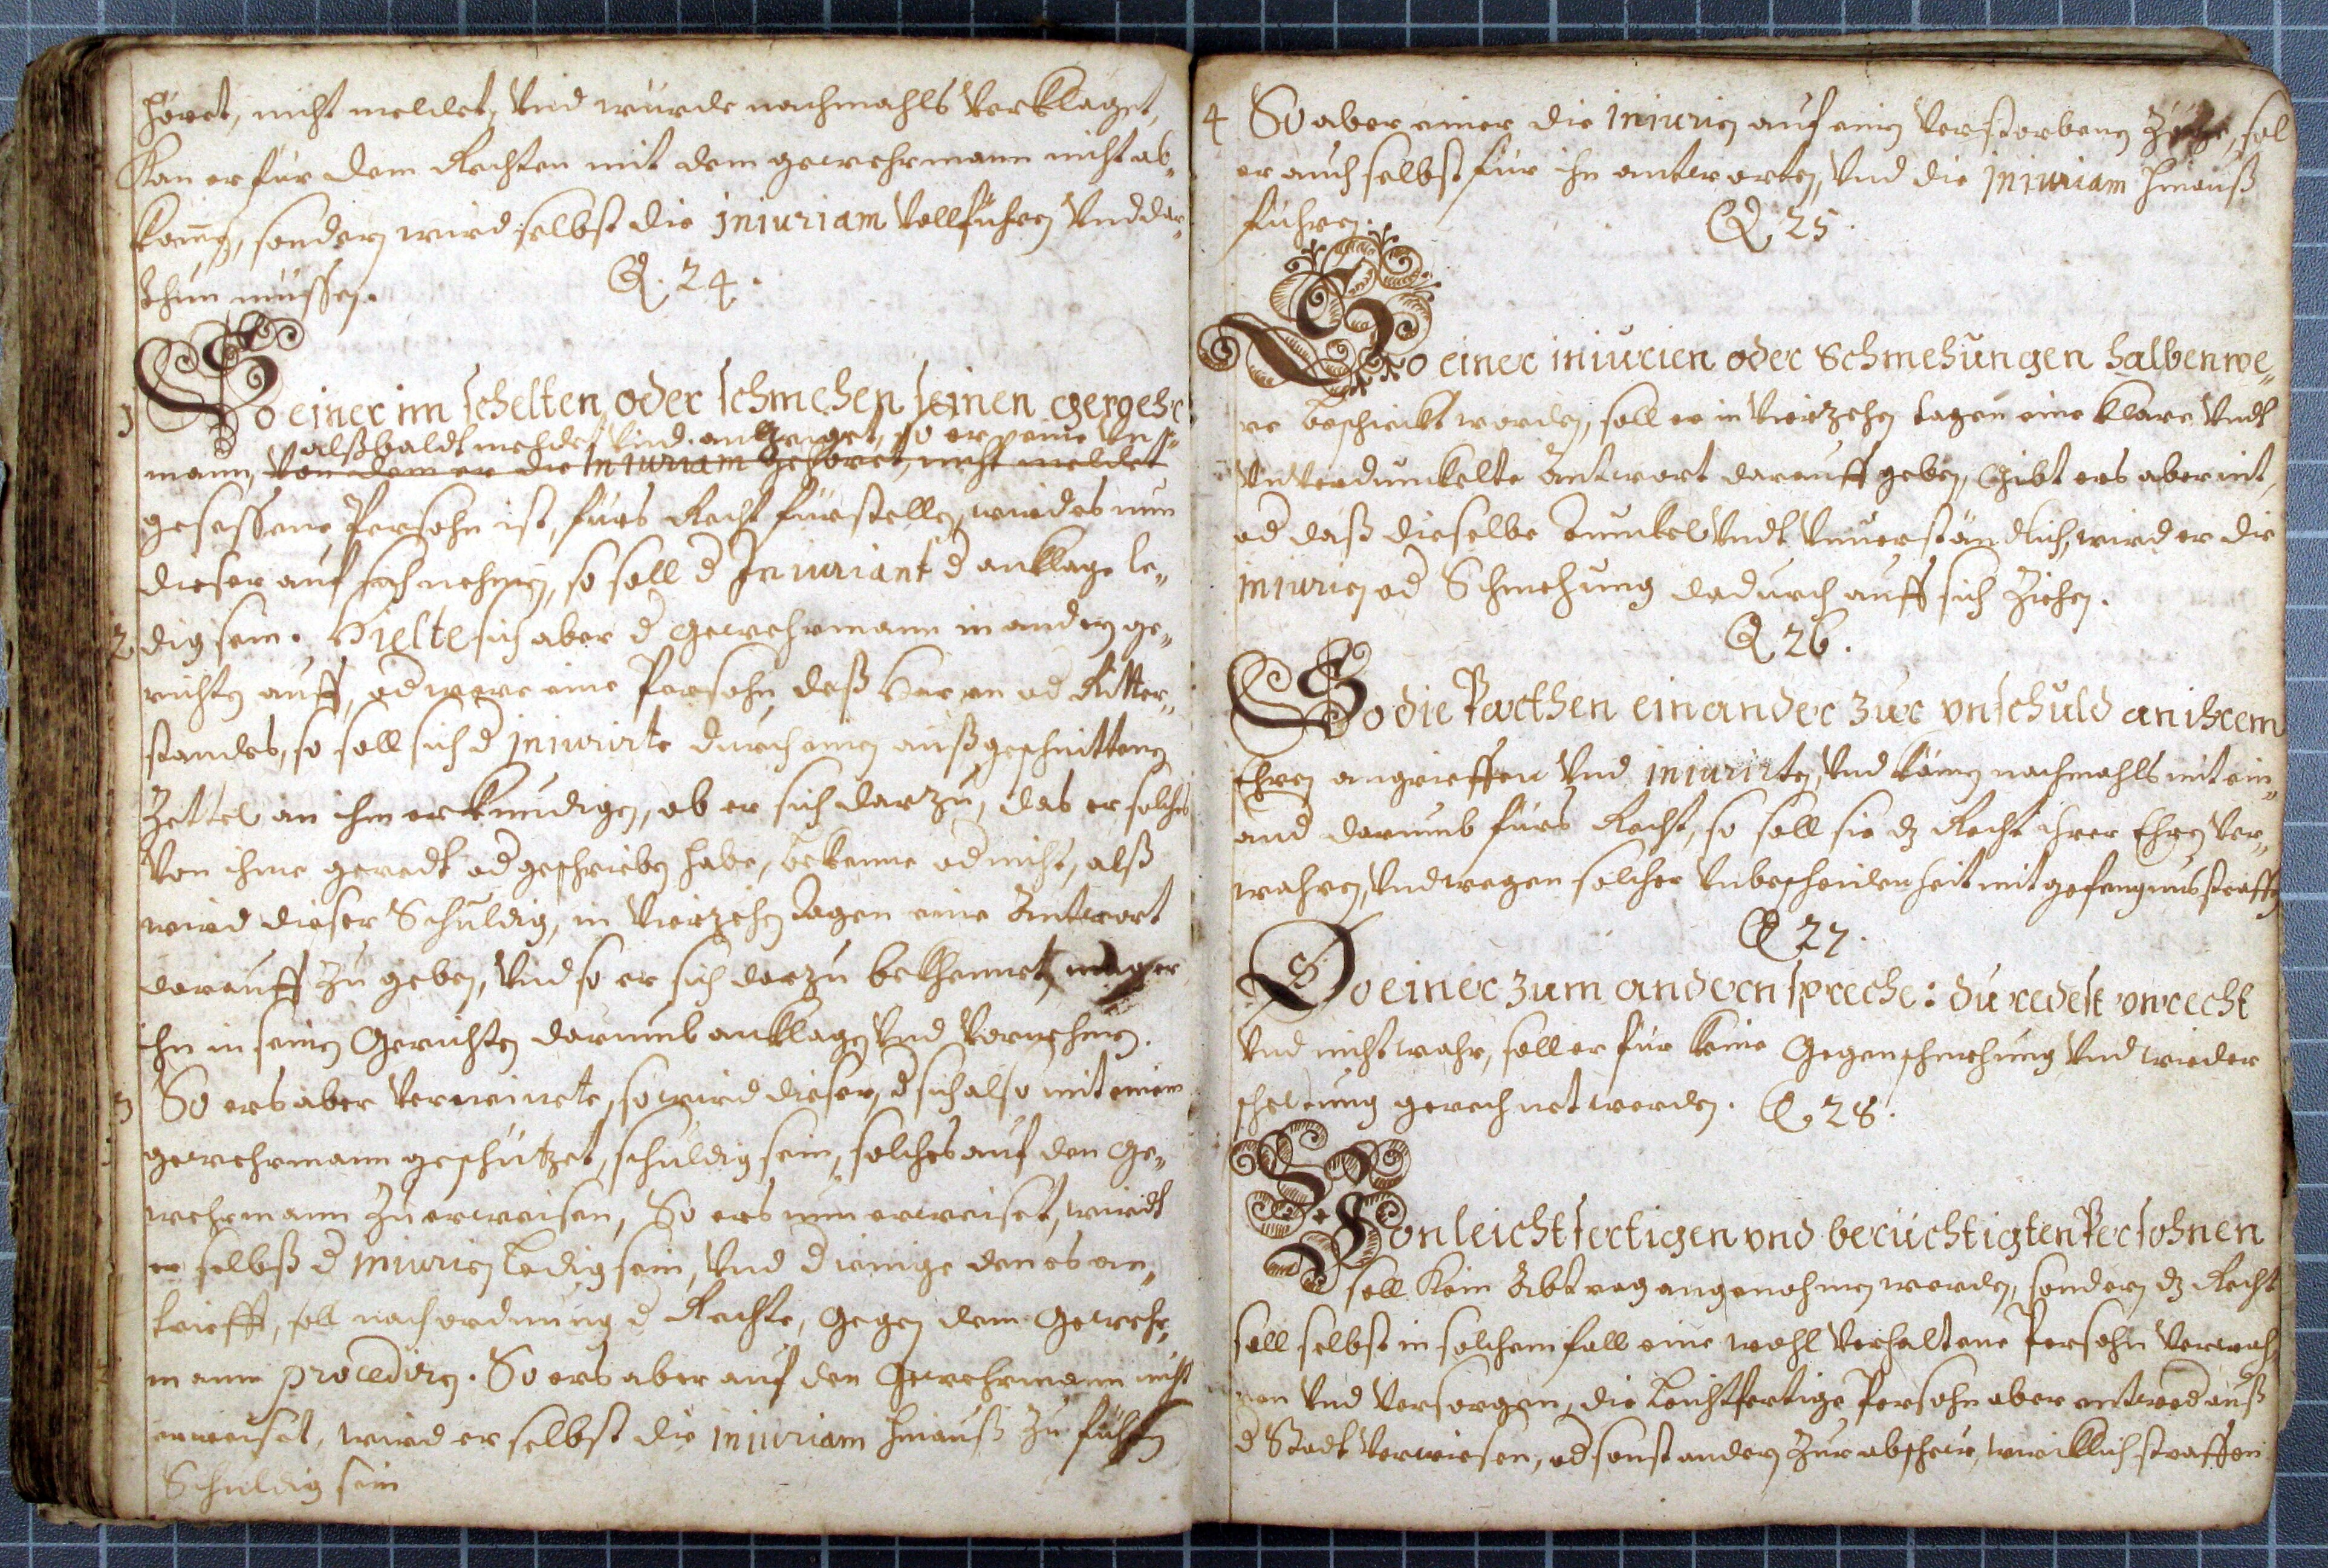 höret, nicht meldet, Vnd wurde nachmahls Verklaget,
Kan er für dem Rechten mit dem gewehrmann nicht ab„
kom̅en, sondern wird selbst die injuriam Vollführen Vnd dar„
thun müssen.
Q. 24.
1 So einer im schelten oder schmehen seinen gergehr
alßbaldt meldet Vnd anzeiget, so er seine Vn„
mann, Von dem er die Injuriam gehöret, nicht meldet
gesessene Persohn ist, fürs Recht fürstellen, wird es nun
dieser auf sich nehmen, so soll d Injuriant d anklage le„
2 dig sein. Hielte sich aber d gewehrmann in andern ge„
richten auff, od were eine Persohn deß Herren od Ritter„
standes, so soll sich d injurirte durch einen außgeschnittenen
Zettel an ihm erkundigen, ob er sich darzu, das er solches
Von ihme geredt od geschrieben habe, bekenne od nicht, alß
wird dieser Schuldig, in Vierzehen tagen eine Antwort
darauff zu geben, Vnd so er sich darzu bekhennet, mag er
ihn in seinen Gerichten darumb anklagen Vnd Vornehmen.
3 So ers aber Verneinete, so wird dieser, d sich also mit einem
gewehrmann geschützet, schuldig sein, solches auf den Ge„
wehrmann zu erweisen, So ers nun erweiset, wirdt
er selbst d injurien ledig sein, Vnd d ienige den es an„
trifft, soll nach ordnung d Rechte, gegen dem Gewehr„
mann procediren. So ers aber auf den Gewehrmann nicht
erweiset, wird er selbst die injuriam hinauß zu führen
Schuldig sein
4 So aber einer die injurien auf einen Verstorbenen zöge, sol
er auch selbst für ihn antworten, Vnd die injuriam hinauß
führen.
Q. 25.
So einer iniurien oder Schmehungen halben we„
re beschickt worden, soll er in Vierzehen tagen eine klare Vndt
VnVerdunckelte Antwort darauff geben, Gibt ers aber nit,
od daß dieselbe dunckel Vndt Vnuerständtlich, wird er die
injurien od Schmehung dadurch auff sich ziehen.
Q. 26.
So die Parthen einander zur vnschuld an ihrem
Ehren angrieffen Vnd injurirten, Vnd kämen nachmahls mit ein„
and darumb fürs Recht, so soll sie dz Recht ihrer Ehren Ver„
wahren, Vnd wegen solcher Vnbescheidenheit mit gefengnus straffen
Q 27.
So einer zum andern spreche: du redest vnrecht
Vnd nicht wahr, soll er für keine Gegenschmehung Vnd wieder
scheltung gerechnet werden. Q. 28.
Von leichtfertigen vnd berüchtigten Persohnen
soll kein Abtrag angenohmen werden, sondern dz Recht
soll selbst in solchem fall eine wohl Verhaltene Persohn Verwah„
ren Vnd Versorgen, die leichtfertige Persohn aber entwed auß
d Stadt Verwiesen, od sonst andern zur abscheu, wircklich straffen